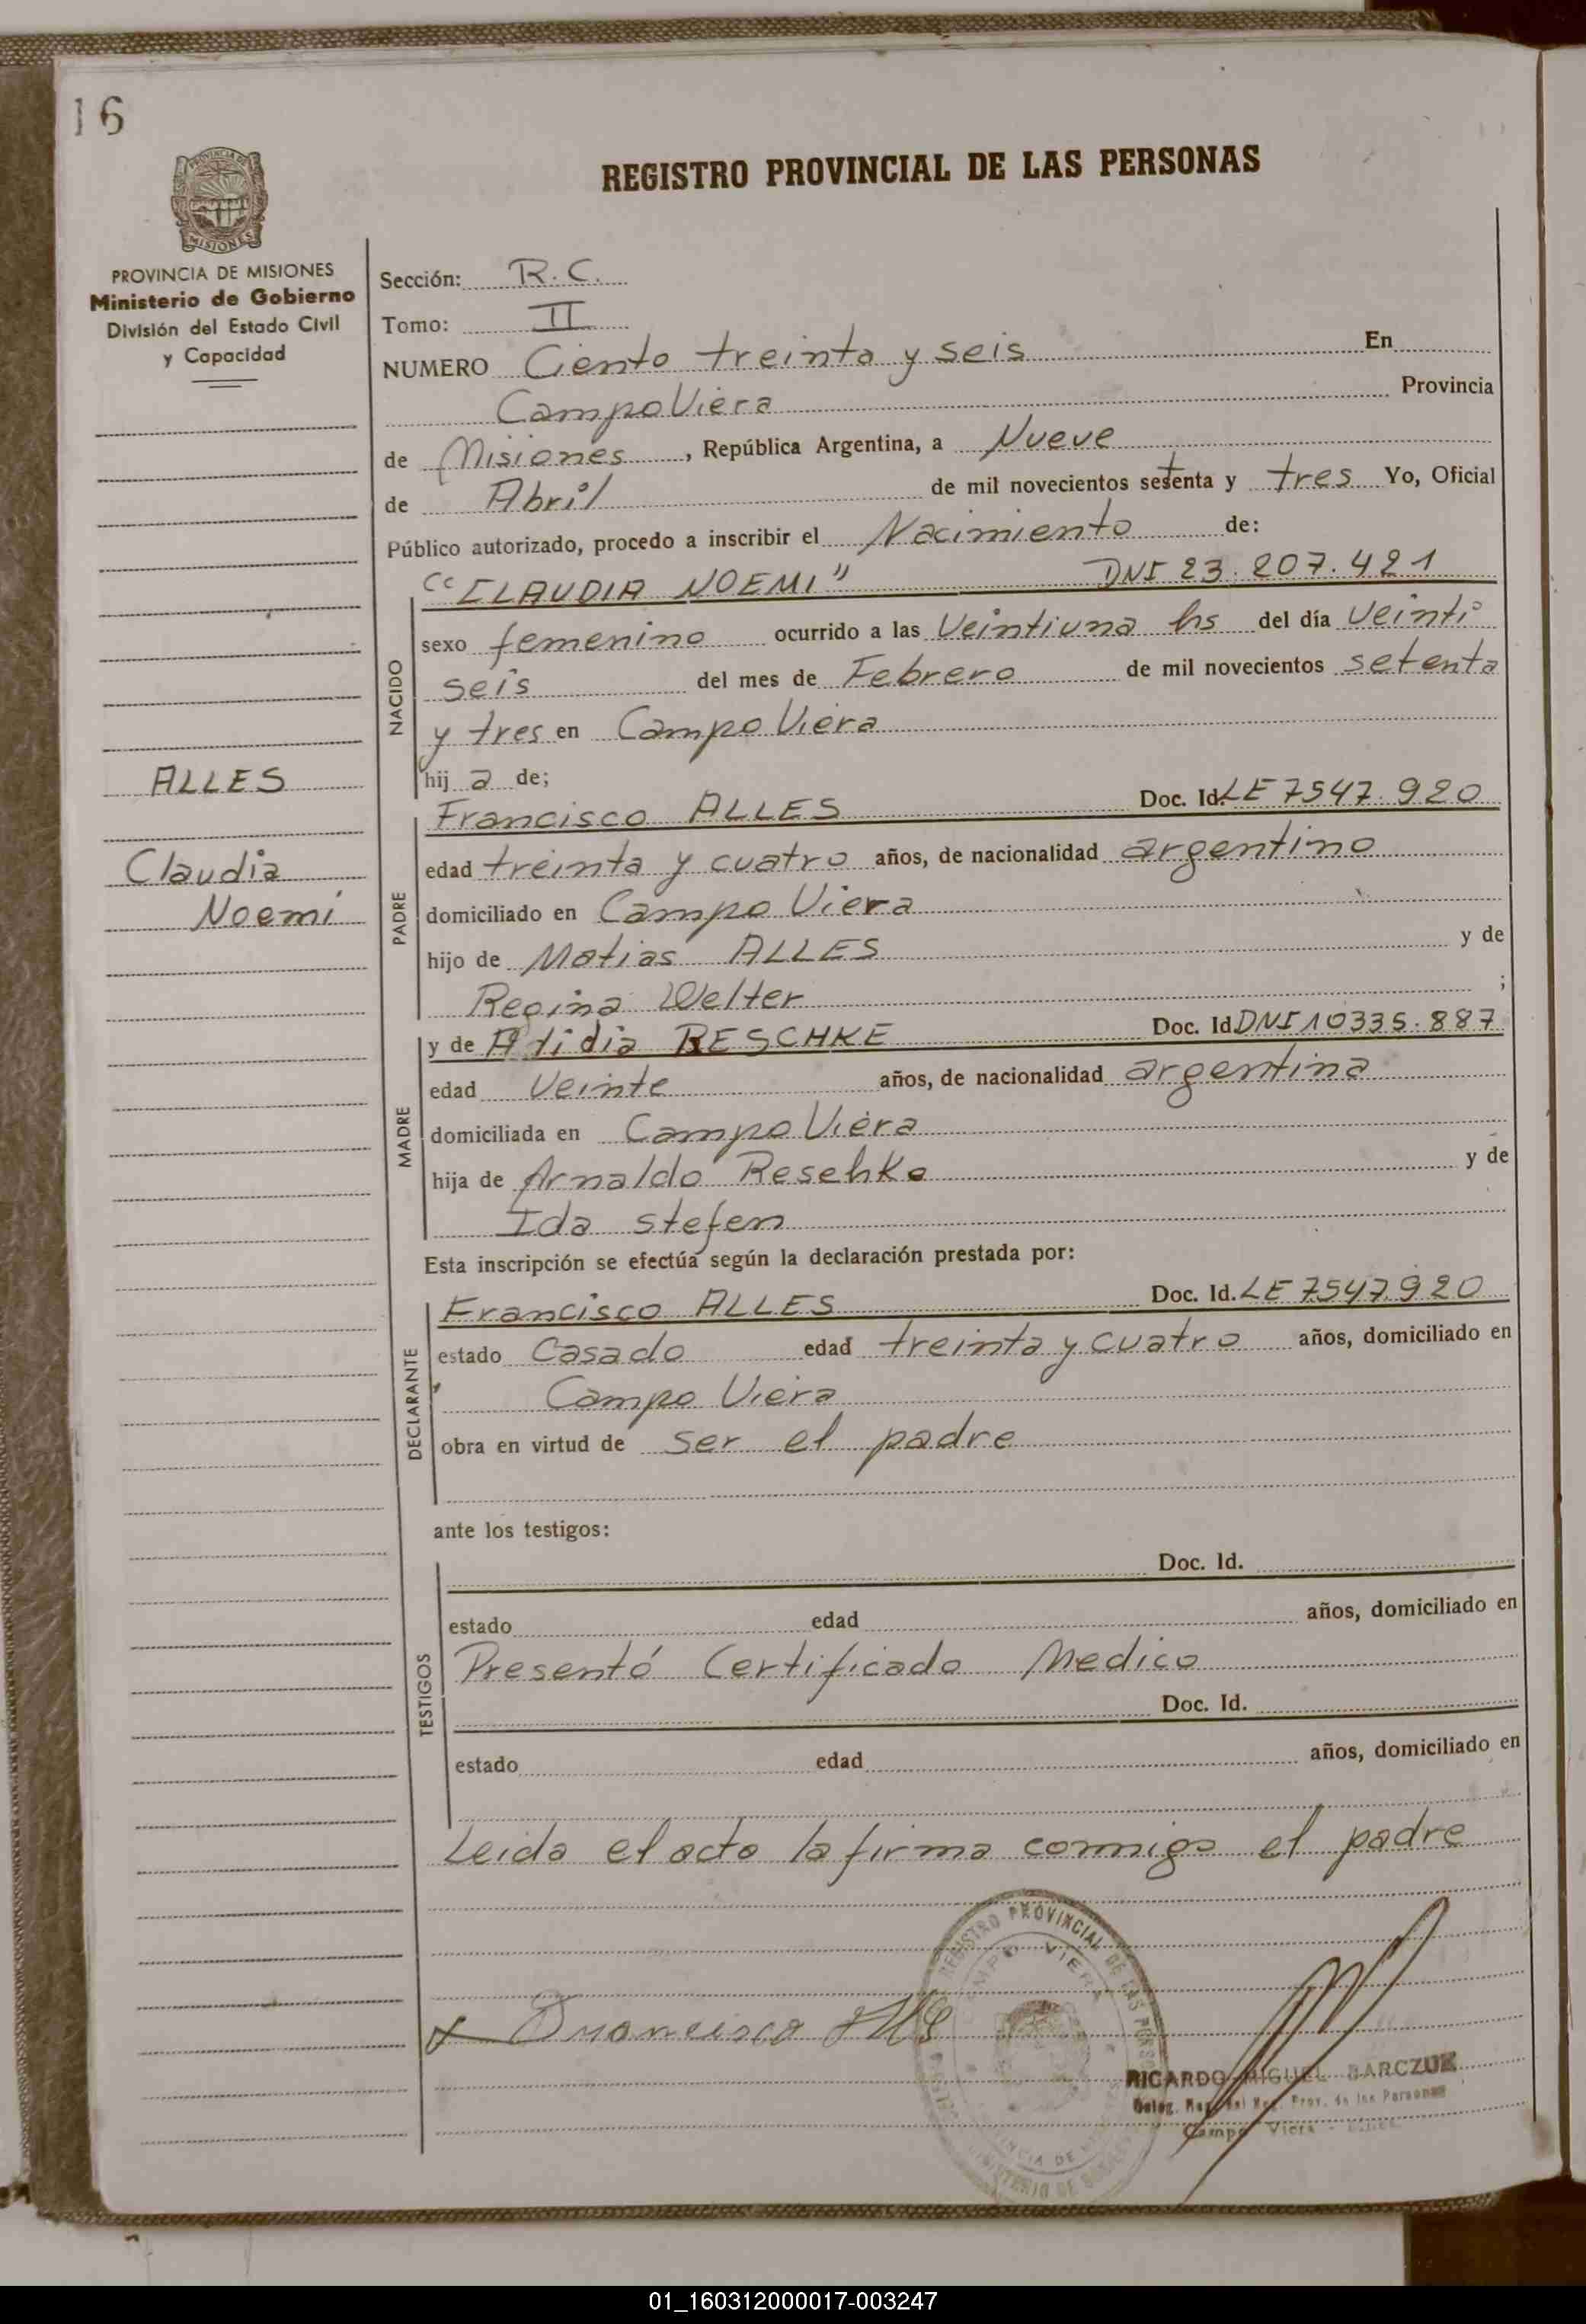 16
PROVINCIA DE
MISIONES
PROVINCIA DE MISIONES
Ministerio de Gobierno
División del Estado Civil
y Capacidad
ALLES
Claudia
Noemí
REGISTRO PROVINCIAL DE LAS PERSONAS
Sección: R.C.
Tomo: II
NUMERO Ciento treinta y seis En
Campo Viera Provincia
de Misiones, República Argentina, a Nueve
de Abril de mil novecientos setenta y tres Yo, Oficial
Público autorizado, procedo a inscribir el Nacimiento de:
"CLAUDIA NOEMI" DNI 23.207.421
NACIDO
sexo femenino ocurrido a las Veintiuna hs del día Veinti
seis del mes de Febrero de mil novecientos setenta
y tres en Campo Viera
hij a de;
PADRE
Francisco ALLES Doc. Id. LE 7547.920
edad treinta y cuatro años, de nacionalidad argentino
domiciliado en Campo Viera
hijo de Matias ALLES y de
Regina Welter ;
MADRE
y de RESCHKE Doc. Id. DNI 10335.887
edad Veinte años, de nacionalidad argentina
domiciliada en Campo Viera
hija de Arnaldo Reschke y de
Ida Stefen
Esta inscripción se efectúa según la declaración prestada por:
DECLARANTE
Francisco ALLES Doc. Id. LE 7547.920
estado Casado edad treinta y cuatro años, domiciliado en
Campo Viera
obra en virtud de ser el padre
ante los testigos:
TESTIGOS
Doc. Id.
estado edad años, domiciliado en
Presentó Certificado Medico
Doc. Id.
estado edad años, domiciliado en
Leida el acta la firma conmigo el padre
Francisco
REGISTRO PROVINCIAL DE LAS PERSONAS
CAMPO VIERA
RICARDO MIGUEL BARCZUK
Prov. de las Personas
Campo Viera
01_160312000017-003247